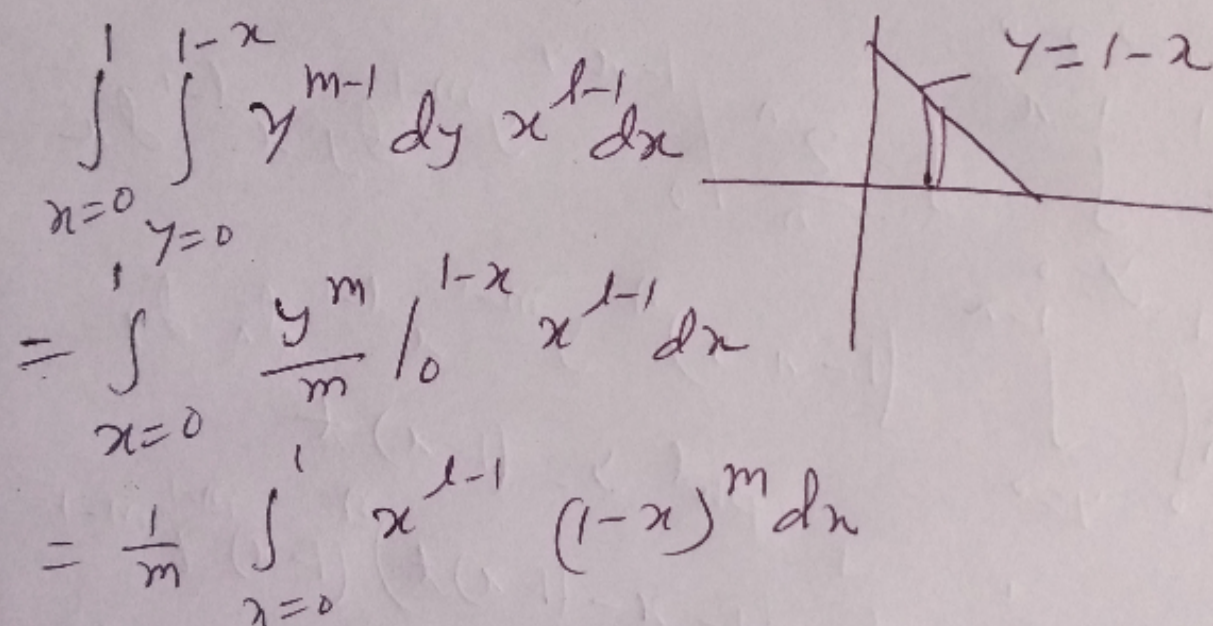 ∫_{x=0}^{1} ∫_{y=0}^{1-x} y^{m-1} dy x^{l-1} dx
y = 1-x
= ∫_{x=0}^{1} y^m/m |_0^{1-x} x^{l-1} dx
= 1/m ∫_{x=0}^{1} x^{l-1} (1-x)^m dx